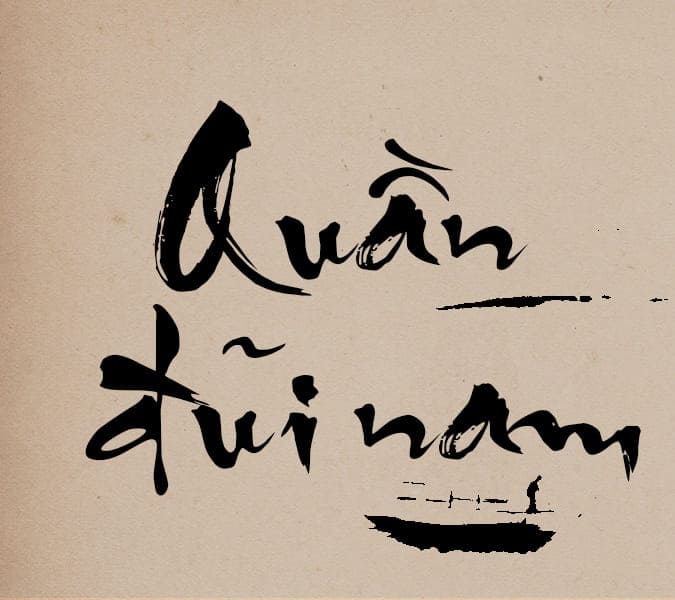 Quần
đũi nam